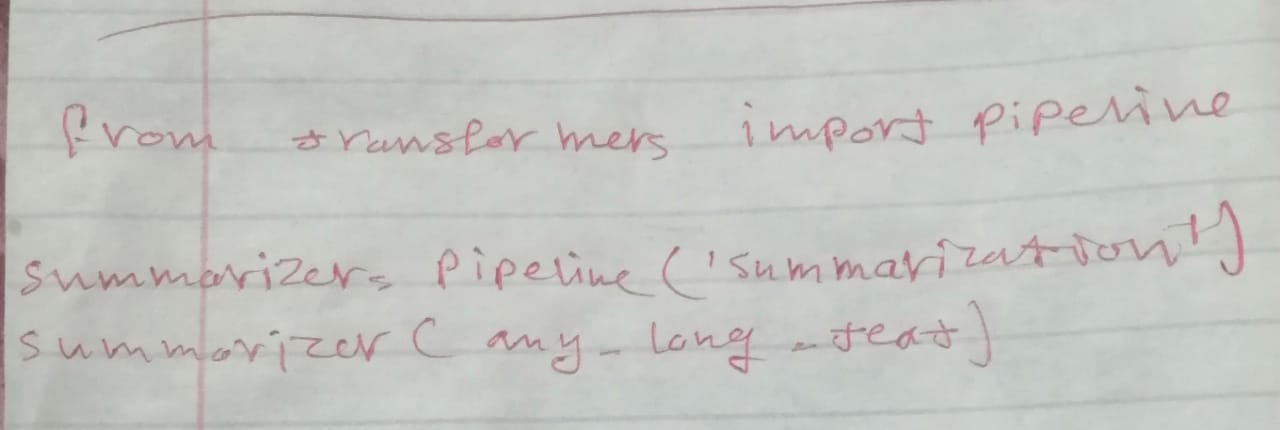 from transformers import pipeline
summarizer = pipeline('summarization')
summarizer(any_long_text)